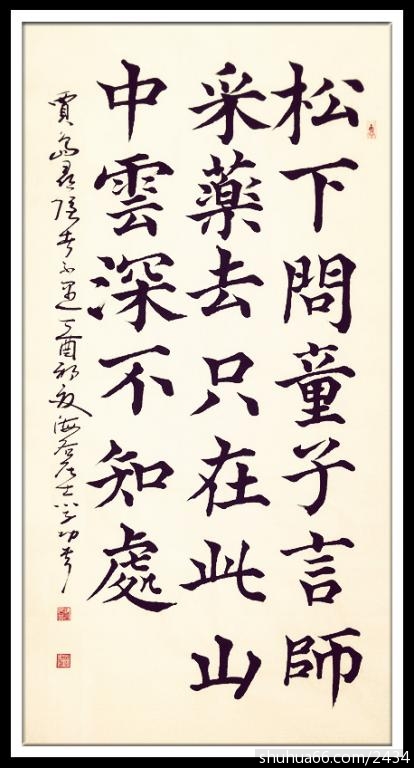 松下問童子言師
采藥去只在此山
中雲深不知處
賈島尋隱者不遇 丁酉初夏海谷居士學功書
shuhua66.com/2434